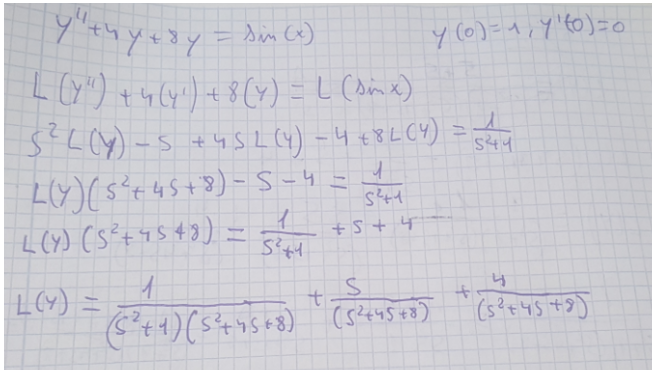 y'' + 4y + 8y = sin(x)    y(0)=1, y'(0)=0
L(y'') + 4(y') + 8(y) = L(sinx)
s²L(y) - s + 4sL(y) - 4 + 8L(y) = 1/(s²+1)
L(y)(s²+4s+8) - s - 4 = 1/(s²+1)
L(y)(s²+4s+8) = 1/(s²+1) + s + 4
L(y) = 1/((s²+1)(s²+4s+8)) + s/(s²+4s+8) + 4/(s²+4s+8)